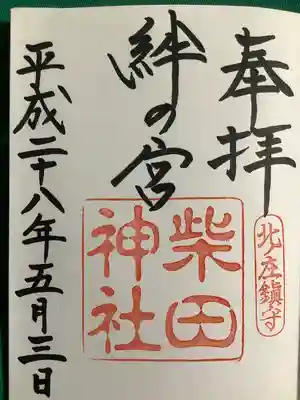 奉拝
北庄鎮守
絆の宮
柴田
神社
平成二十八年五月三日